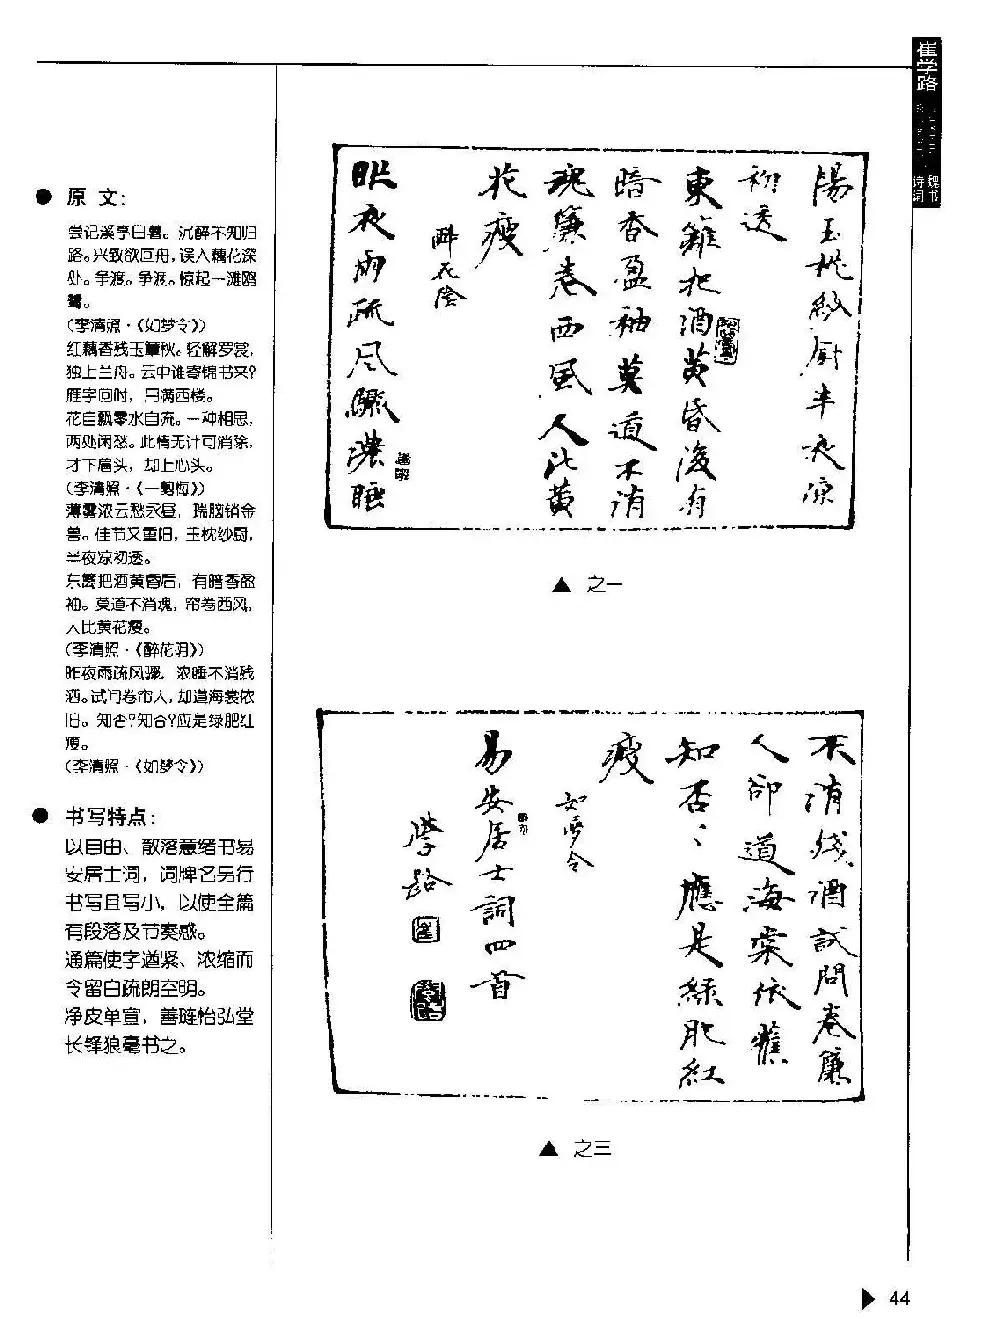 崔学路
魏书
诗词
● 原文：
尝记溪亭日暮。沉醉不知归
路。兴致欲回舟，误入藕花深
处。争渡。争渡。惊起一滩鸥
鹭。
（李清照·《如梦令》）
红藕香残玉簟秋。轻解罗裳，
独上兰舟。云中谁寄锦书来？
雁字回时，月满西楼。
花自飘零水自流。一种相思，
两处闲愁。此情无计可消除，
才下眉头，却上心头。
（李清照·《一剪梅》）
薄雾浓云愁永昼，瑞脑销金
兽。佳节又重阳，玉枕纱厨，
半夜凉初透。
东篱把酒黄昏后，有暗香盈
袖。莫道不消魂，帘卷西风，
人比黄花瘦。
（李清照·《醉花阴》）
昨夜雨疏风骤，浓睡不消残
酒。试问卷帘人，却道海棠依
旧。知否？知否？应是绿肥红
瘦。
（李清照·《如梦令》）
● 书写特点：
以自由、散落意绪书易
安居士词，词牌名另行
书写且写小，以使全篇
有段落及节奏感。
通篇使字遒紧、浓缩而
令留白疏朗空明。
净皮单宣，善琏怡弘堂
长锋狼毫书之。
陽玉枕紗厨半夜凉
初透
東籬把酒黄昏後有
暗香盈袖莫道不消
魂簾卷西風人比黄
花瘦
醉花陰
昨夜雨疏风驟濃睡
▲ 之一
不消残酒試問卷簾
人卻道海棠依舊
知否、應是緑肥紅
瘦
如夢令
易安居士詞四首
學路
▲ 之三
▶ 44